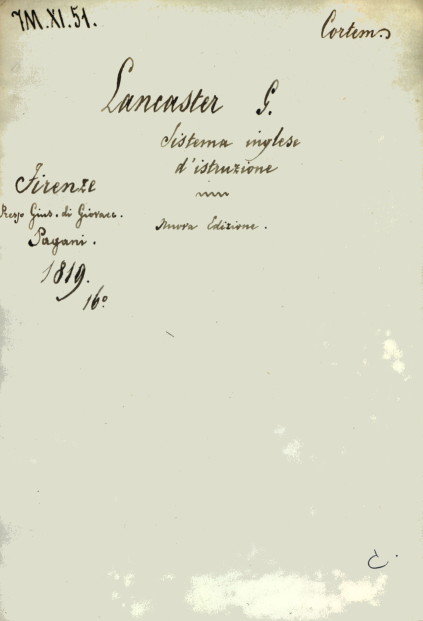 7M.XI.51.
Cortem.
Lancaster G.
Sistema inglese
d'istruzione
Firenze
Presso Gius. di Giovacc.
Pagani.
Nuova Edizione.
1819.
16°
C.